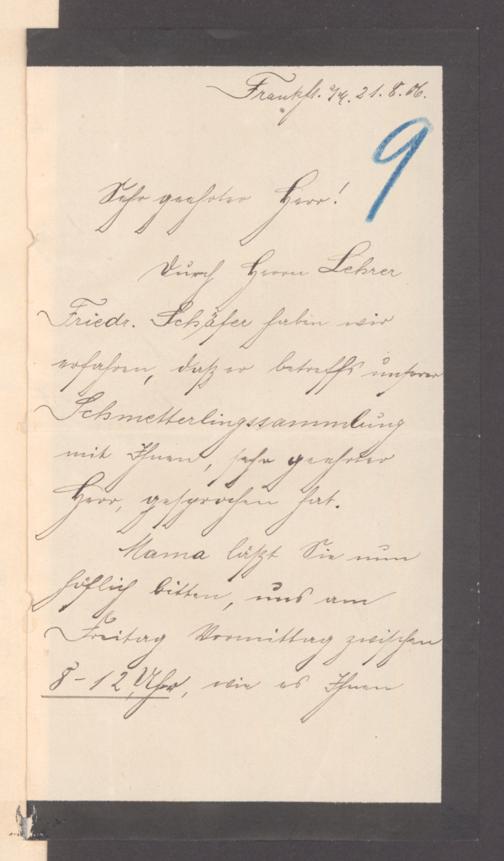 Frankft. a/M. 21.8.06.
9
Sehr geehrter Herr!
Durch Herrn Lehrer
Friedr. Schäfer haben wir
erfahren, daß er betreffs unserer
Schmetterlingssammlung
mit Ihnen, sehr geehrter
Herr, gesprochen hat.
Mama läßt Sie nun
höflich bitten, uns am
Freitag Vormittag zwischen
8-12 Uhr, wie es Ihnen